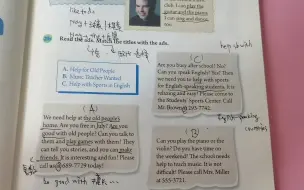 like to do
club. I can play the
guitar and the piano.
I can sing and dance,
too.
2a Read the ads. Match the titles with the ads.
help sb with
A. Help for Old People
B. Music Teacher Wanted
C. Help with Sports in English
( C )
Are you busy after school? No?
Can you speak English? Yes? Then
we need you to help with sports
for English-speaking students. It is
relaxing and easy! Please come to
the Students' Sports Center. Call
Mr. Brown at 293-7742.
English-speaking
countries
( A )
We need help at the old people's
home. Are you free in July? Are you
good with old people? Can you talk to
them and play games with them? They
can tell you stories, and you can make
friends. It is interesting and fun! Please
call us at 689-7729 today!
( B )
Can you play the piano or the
violin? Do you have time on
the weekend? The school needs
help to teach music. It is not
difficult! Please call Mrs. Miller
at 555-3721.
be good with